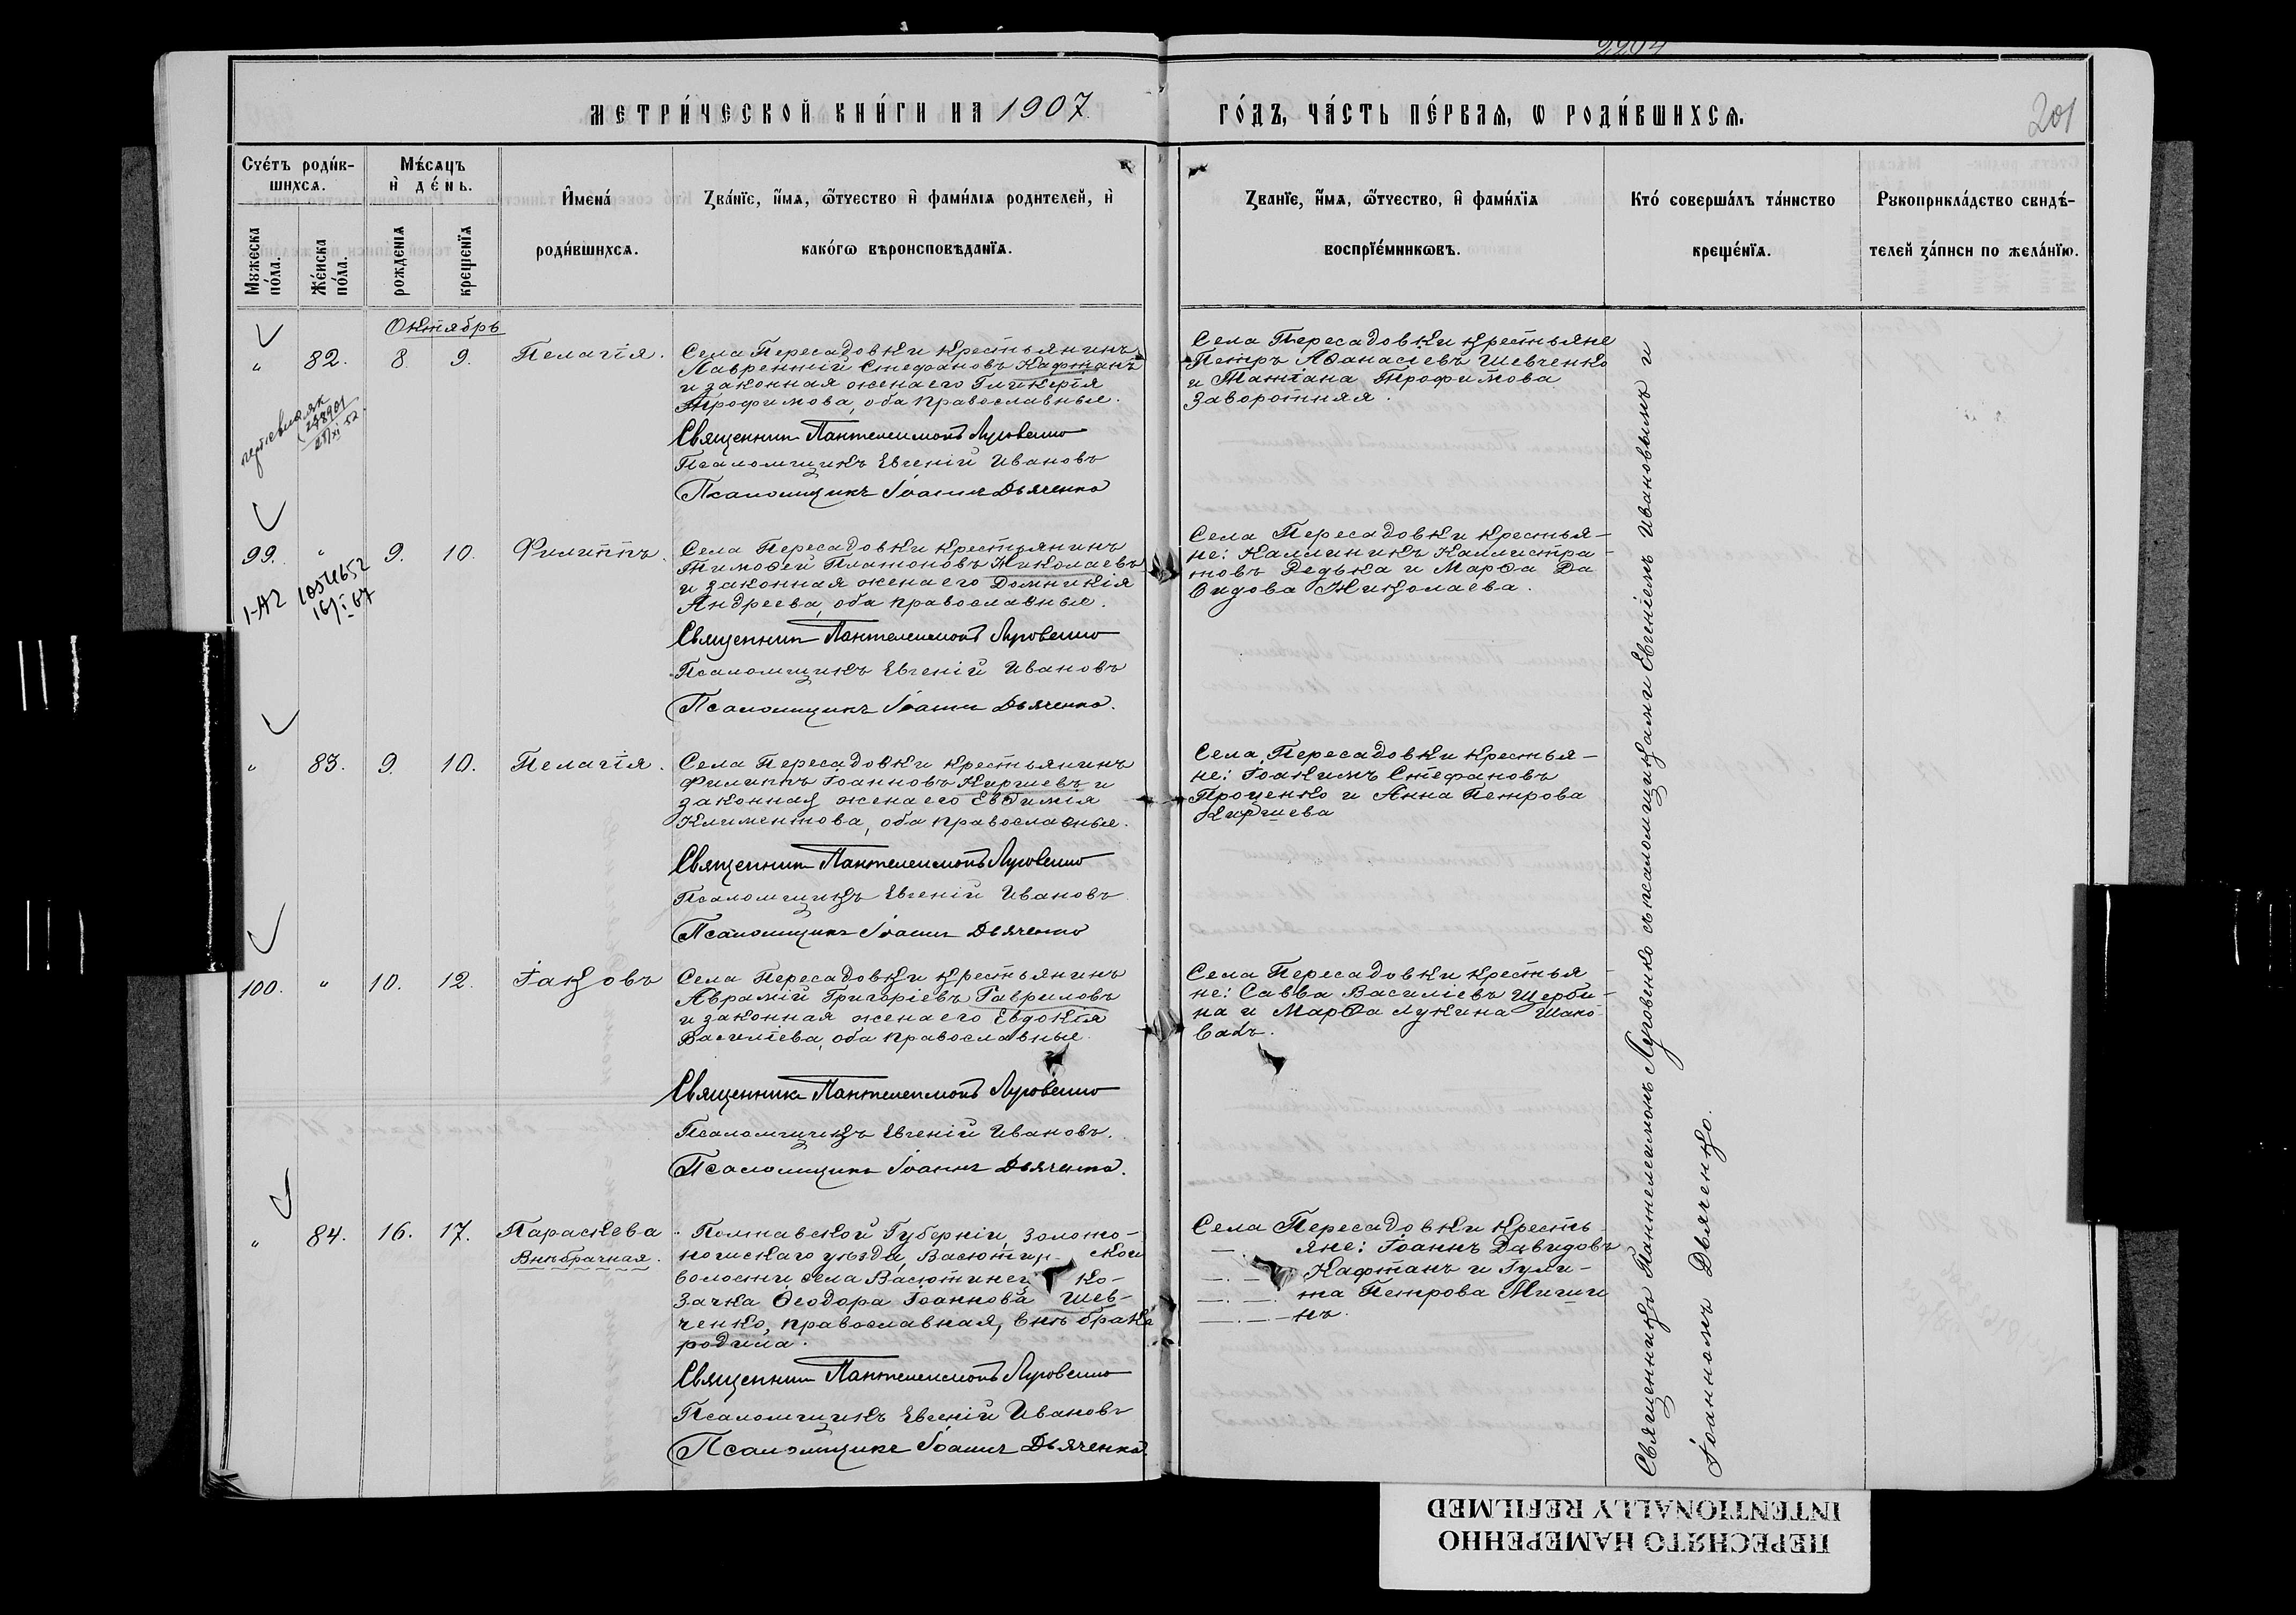 2204
МЕТРИ́ЧЕСКОЙ КНИ́ГИ НА 1907
ГО́ДЪ, ЧА́СТЬ ПЕ́РВАѦ, Ѡ РОДИ́ВШИХСѦ.
201
Сче́тъ роди́в-
шихсѧ.
Мꙋжеска по́ла.
Же́нска по́ла.
Мѣ́сѧцъ
и҆ де́нь.
рожденїѧ
крещенїѧ
И҆мена́
роди́вшихсѧ.
Зва́нїе, и҆́мѧ, ѻ҆́тчество и҆ фами́лїѧ родителей, и҆
како́гѡ вѣроисповѣданїѧ.
Зва́нїе, и҆́мѧ, ѻ҆́тчество, и҆ фами́лїѧ
воспрїе́мникѡвъ.
Кто́ соверша́лъ та́инство
креще́нїѧ.
Рꙋкоприкла́дство свидѣ́-
телей за́писи по жела́нїю.
Октябрь
" 82. 8. 9. Пелагія.
Села Пересадовки крестьянинъ
Лаврентій Стефановъ Кафтанъ
и законная жена его Гликерія
Трофимова, оба православные.
Священник Пантелеимонъ Луговенко
Псаломщикъ Евгеній Ивановъ
Псаломщикъ Іоаннъ Дьяченко
Села Пересадовки крестьяне
Петръ Аѳанасіевъ Шевченко
и Татіана Трофимова
Заворотняя.
99. " 9. 10. Филиппъ.
1-А2 1054652
16/I 67
Села Пересадовки крестьянинъ
Тимоѳей Платоновъ Николаевъ
и законная жена его Домникія
Андреева, оба православные.
Священник Пантелеимонъ Луговенко
Псаломщикъ Евгеній Ивановъ
Псаломщикъ Іоаннъ Дьяченко.
Села Пересадовки крестья-
не: Каллиникъ Каллистра-
товъ Редька и Марѳа Да
видова Николаева.
" 83. 9. 10. Пелагія.
Села Пересадовки крестьянинъ
Филиппъ Іоанновъ Киршевъ и
законная жена его Евѳимія
Климентова, оба православные.
Священник Пантелеимонъ Луговенко
Псаломщикъ Евгеній Ивановъ
Псаломщикъ Іоаннъ Дьяченко
Села Пересадовки крестья-
не: Іоакимъ Стефановъ
Проценко и Анна Петрова
Киршева
100. " 10. 12. Іаковъ
Села Пересадовки крестьянинъ
Аврамій Григоріевъ Гавриловъ
и законная жена его Евдокія
Василіева, оба православные
Священник Пантелеимонъ Луговенко
Псаломщикъ Евгеній Ивановъ.
Псаломщикъ Іоаннъ Дьяченко.
Села Пересадовки крестья-
не: Савва Василіевъ Щерби-
на и Марѳа Лукина Шапо-
валъ.
" 84. 16. 17. Параскева
Внѣбрачная.
Полтавской Губерніи, Золото-
ношскаго уѣзда, Васютин ской
волости села Васютинец Ко-
зачка Ѳеодора Іоаннова Шев-
ченко, православная, внѣ брака
родила.
Священник Пантелеимонъ Луговенко
Псаломщикъ Евгеній Ивановъ
Псаломщикъ Іоаннъ Дьяченко.
Села Пересадовки кресть-
яне: Іоаннъ Давидовъ
Кафтанъ и Гули-
та Петрова Миши
нъ.
Священникъ Пантелеимонъ Луговенко съ псаломщиками Евгеніемъ Ивановымъ и
Іоанномъ Дьяченко.
ПЕРЕСНЯТО НАМЕРЕННО
INTENTIONALLY REFILMED